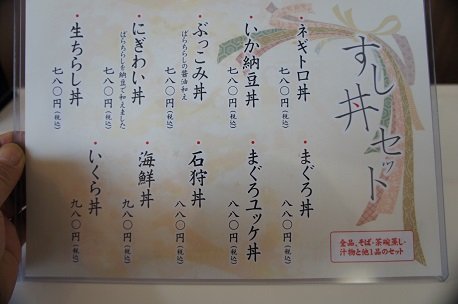 すし丼セット
全品、そば・茶碗蒸し・
汁物と他1品のセット
・ネギトロ丼
七八〇円(税込)
・いか納豆丼
七八〇円(税込)
・ぶっこみ丼
ばらちらしの醤油和え
七八〇円(税込)
・にぎわい丼
ばらちらしを納豆で和えました
七八〇円(税込)
・生ちらし丼
七八〇円(税込)
・まぐろ丼
八八〇円(税込)
・まぐろユッケ丼
八八〇円(税込)
・石狩丼
八八〇円(税込)
・海鮮丼
九八〇円(税込)
・いくら丼
九八〇円(税込)